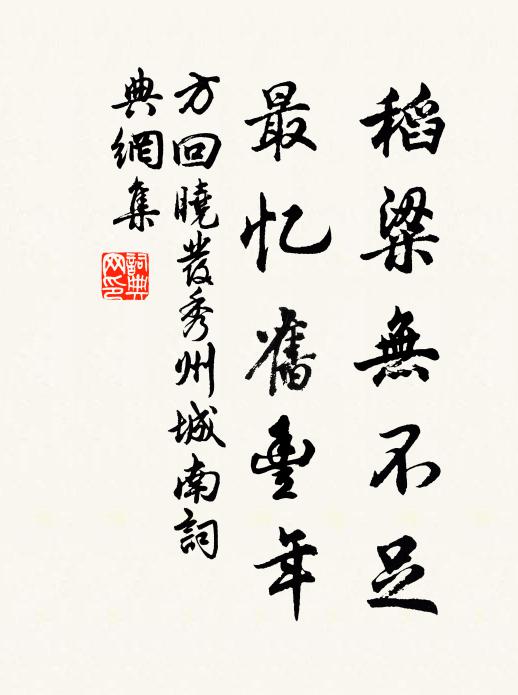 稻粱無不足
最忆舊豐年
方回曉發秀州城南詞
典網集
詞典网印